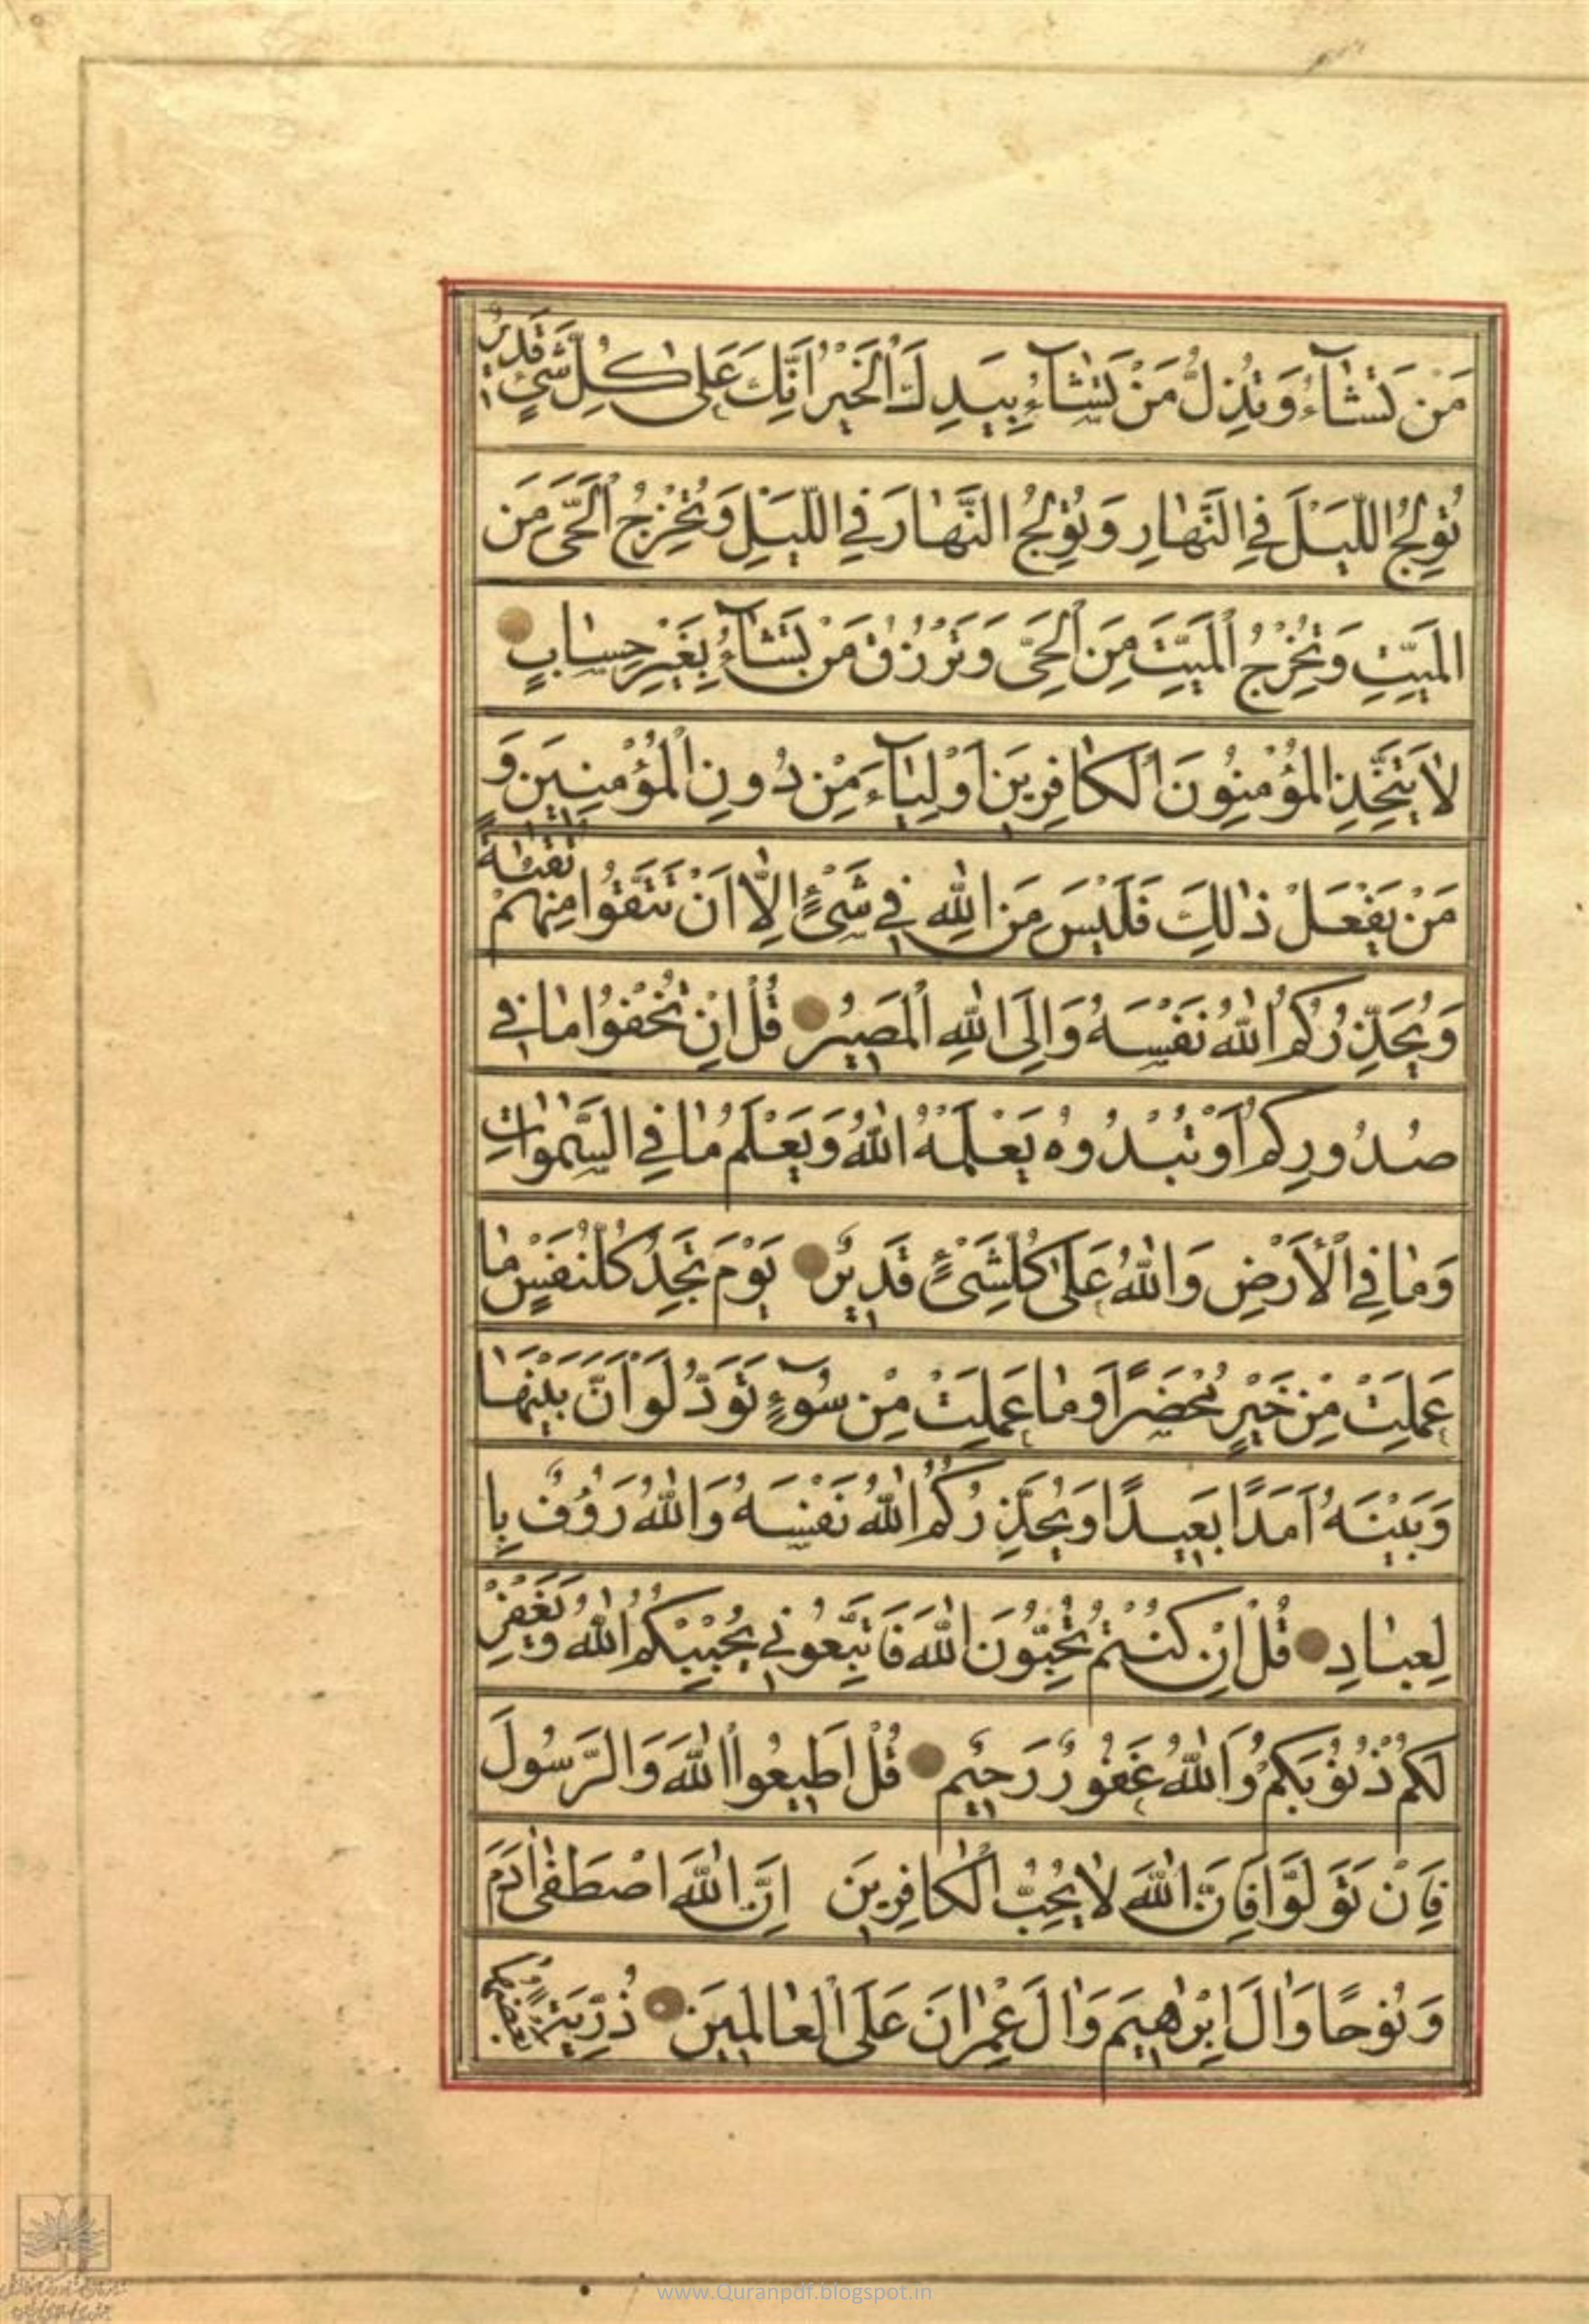 مَنْ تَشَآءُ وَتُذِلُّ مَنْ تَشَآءُ بِيَدِكَ الْخَيْرُ اِنَّكَ عَلىٰ كُلِّ شَیْءٍ قَدیرٌ
تُولِجُ اللَّيْلَ فِي النَّهٰارِ وَتُولِجُ النَّهٰارَ فِي اللَّيْلِ وَتُخْرِجُ الْحَيَّ مِنَ
الْمَيِّتِ وَتُخْرِجُ الْمَيِّتَ مِنَ الْحَيِّ وَتَرْزُقُ مَنْ تَشَآءُ بِغَيْرِ حِسٰابٍ
لاٰ يَتَّخِذِ الْمُؤْمِنُونَ الْكٰافِرينَ اَوْلِيٰآءَ مِنْ دُونِ الْمُؤْمِنينَ وَ
مَنْ يَفْعَلْ ذٰلِكَ فَلَيْسَ مِنَ اللهِ في شَيْءٍ اِلّٰا اَنْ تَتَّقُوا مِنْهُمْ تُقٰىةً
وَيُحَذِّرُكُمُ اللهُ نَفْسَهُ وَاِلَى اللهِ الْمَصيرُ قُلْ اِنْ تُخْفُوا مٰا في
صُدُورِكُمْ اَوْ تُبْدُوهُ يَعْلَمْهُ اللهُ وَيَعْلَمُ مٰا فِي السَّمٰوٰاتِ
وَمٰا فِي الْاَرْضِ وَاللهُ عَلىٰ كُلِّ شَيْءٍ قَديرٌ يَوْمَ تَجِدُ كُلُّ نَفْسٍ مٰا
عَمِلَتْ مِنْ خَيْرٍ مُحْضَرًا وَمٰا عَمِلَتْ مِنْ سُوٓءٍ تَوَدُّ لَوْ اَنَّ بَيْنَهٰا
وَبَيْنَهُ اَمَدًا بَعيدًا وَيُحَذِّرُكُمُ اللهُ نَفْسَهُ وَاللهُ رَؤُفٌ بِا
لِعِبٰادِ قُلْ اِنْ كُنْتُمْ تُحِبُّونَ اللهَ فَاتَّبِعُوني يُحْبِبْكُمُ اللهُ وَيَغْفِرْ
لَكُمْ ذُنُوبَكُمْ وَاللهُ غَفُورٌ رَحيمٌ قُلْ اَطيعُوا اللهَ وَالرَّسُولَ
فَاِنْ تَوَلَّوْا فَاِنَّ اللهَ لاٰ يُحِبُّ الْكٰافِرينَ اِنَّ اللهَ اصْطَفىٰ اٰدَمَ
وَنُوحًا وَاٰلَ اِبْرٰهيمَ وَاٰلَ عِمْرٰانَ عَلَى الْعٰالَمينَ ذُرِّيَّةً بَعْضُهٰا
www.Quranpdf.blogspot.in